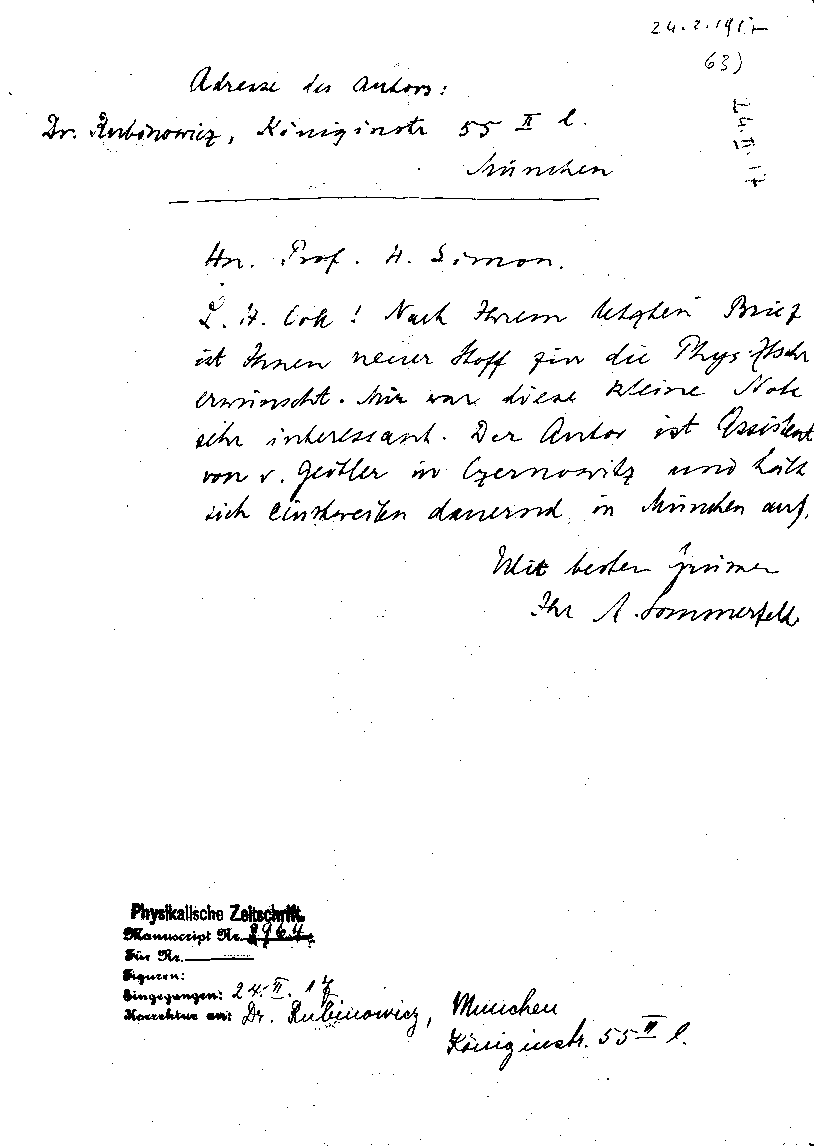 24.2.1917
63)
24 II 17
Adresse des Autors:
Dr. Rubinowicz, Königinstr 55 II l.
München
Hn. Prof. H. Simon.
L. H. Coll! Nach Ihrem letzten Brief
ist Ihnen neuer Stoff für die Phys. Ztschr
erwünscht. Mir war diese kleine Note
sehr interessant. Der Autor ist Assistent
von v. Geitler in Czernowitz und hält
sich einstweilen dauernd in München auf.
Mit besten Grüssen
Ihr A. Sommerfeld
Physikalische Zeitschrift.
Manuscript Nr. 8964
Für Nr.
Figuren:
Eingegangen: 24. II. 17
Korrektur an: Dr. Rubinowicz, München
Königinstr. 55 II l.